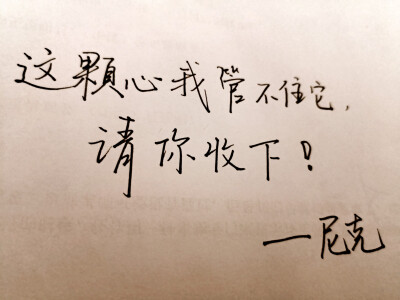 这颗心我管不住它，
请你收下！
一尼克